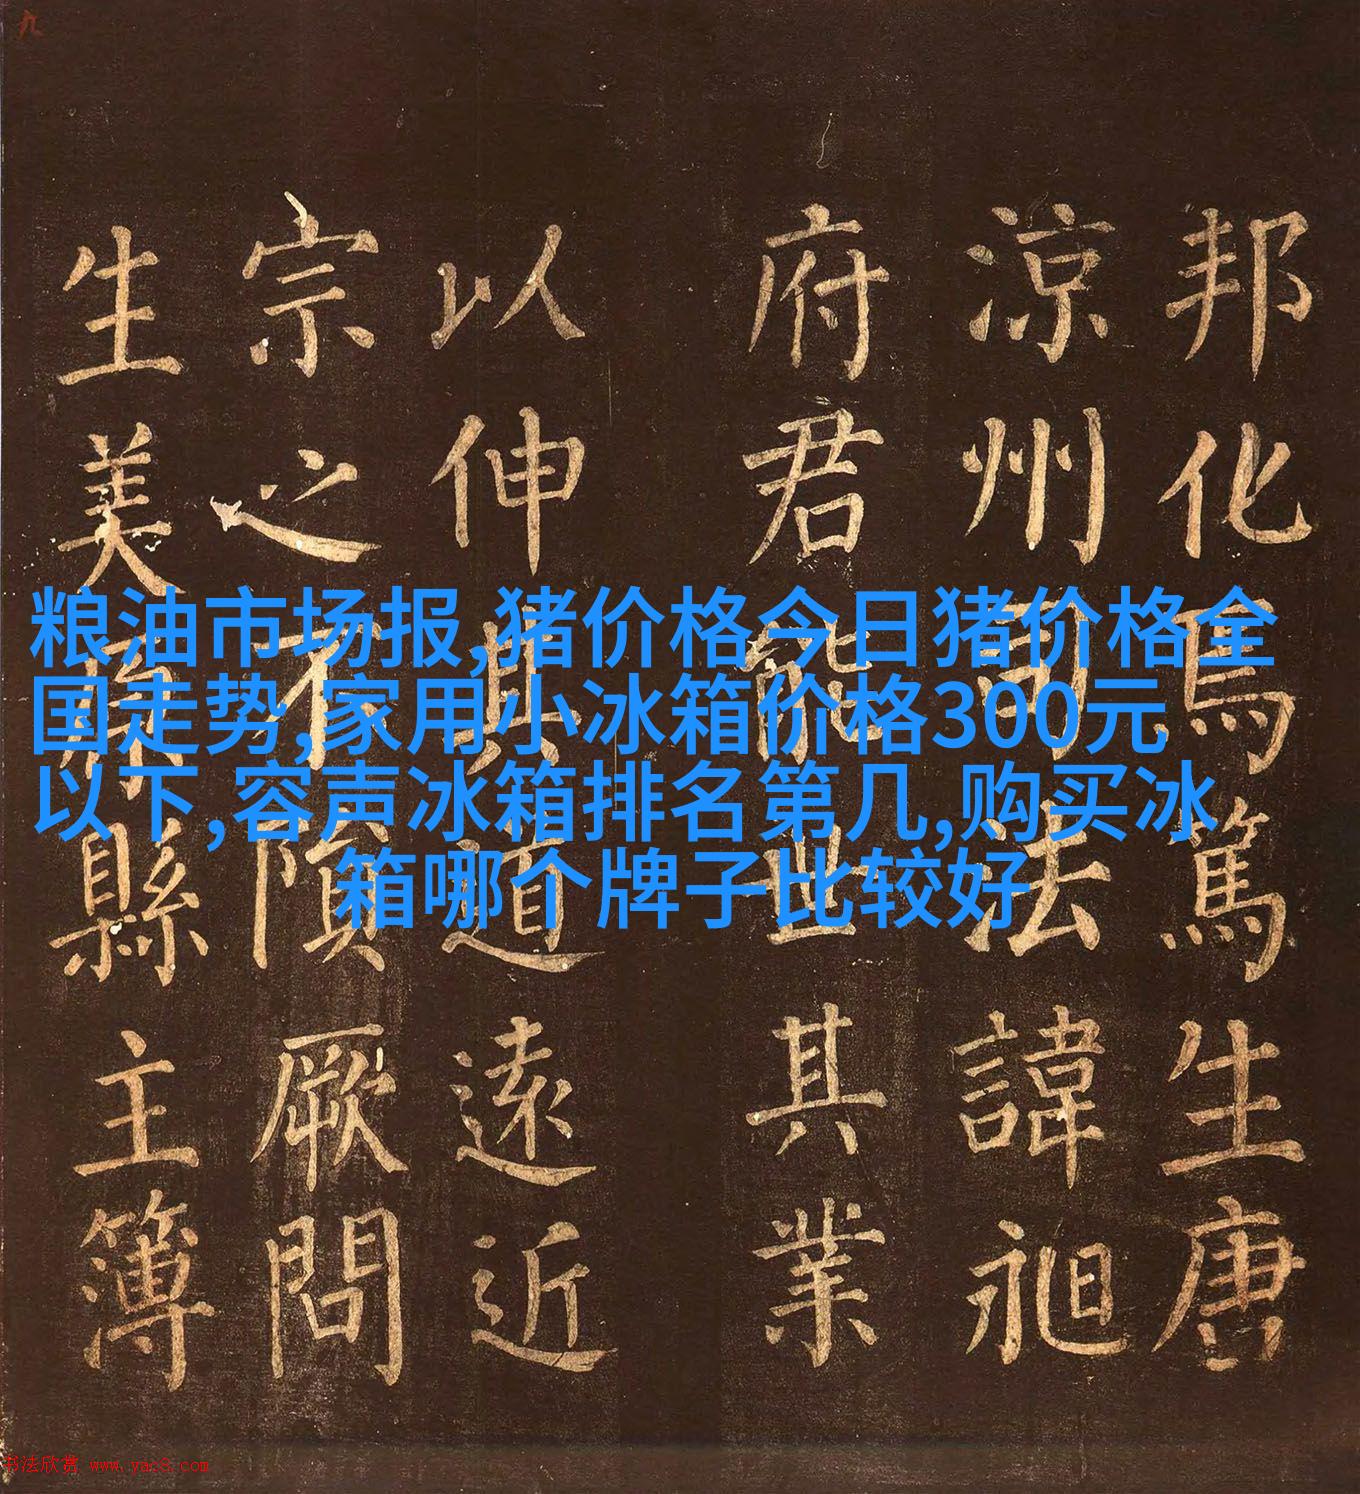 九
邦化焉篤生唐
涼州司法諱昶
府君能世其業
以伸其道遠近
宗之不隕厥問
生美原縣主簿
粮油市场报,猪价格今日猪价格全
国走势,家用小冰箱价格300元
以下,容声冰箱排名第几,购买冰
箱哪个牌子比较好
书法欣赏 www.yac8.com